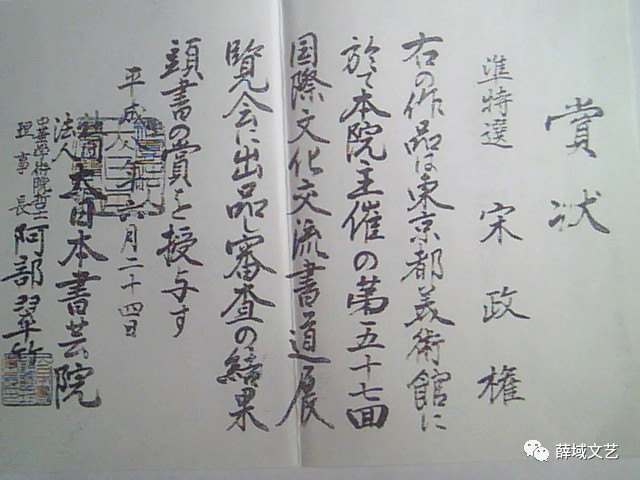 賞状
準特選 宋政権
右の作品は東京都美術館に
於て本院主催の第五十七回
国際文化交流書道展
覧会に出品し審査の結果
頭書の賞を授与す
平成 年六月二十四日
法人 大日本書芸院
中華学術院哲士
理事長 阿部翠竹
薛域文艺